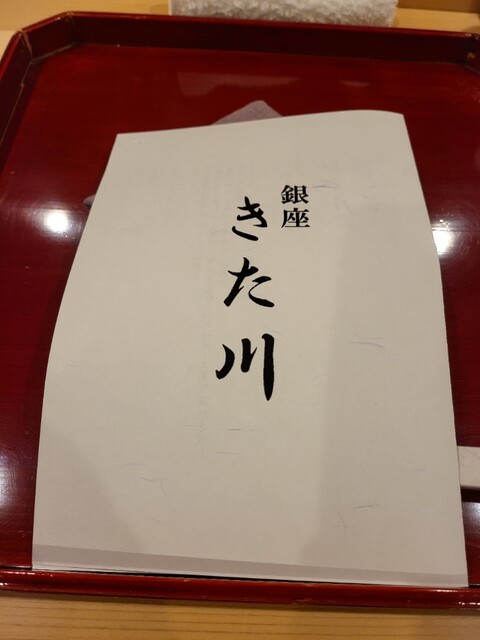 銀座
きた川